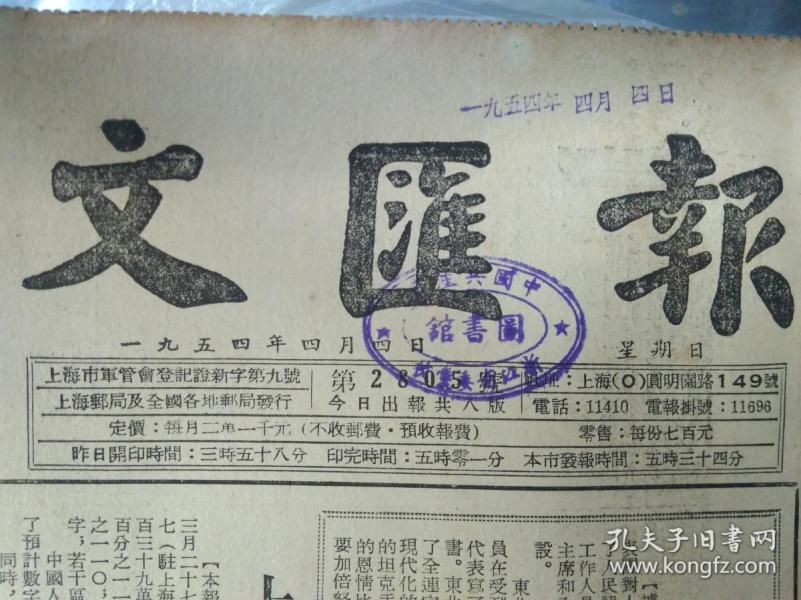 一九五四年 四月 四日
文匯報
中國共產
圖書館
一九五四年四月四日
星期日
上海市軍管會登記證新字第九號
上海郵局及全國各地郵局發行
第2805號
今日出報共八版
社址：上海(0)圓明園路149號
電話：11410 電報掛號：11696
定價：每月二萬一千元（不收郵費·預收報費）
零售：每份七百元
昨日開印時間：三時五十八分 印完時間：五時零一分 本市發報時間：五時三十四分
【本報
三月二十七
七（駐上海
百三十九萬
百分之一一
之一一〇；
字；若干區
中國人
了預計數字
同時，
東北
員在受到
代表寫了
書。東北
了全連
現代化的
的坦克
的恩情
要加倍努
表對
民
工作人員
主席和
設。
孔夫子旧书网
kongfz.com